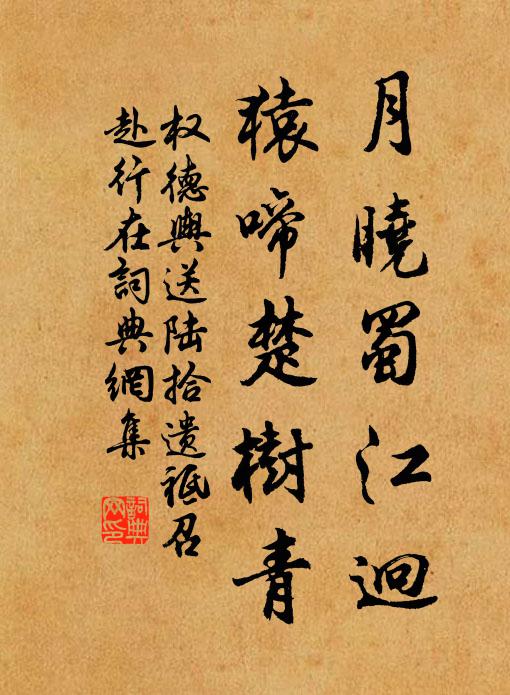 月曉蜀江迥
猿啼楚樹青
权德輿送陆拾遗祗召
赴行在詞典網集
詞典网印